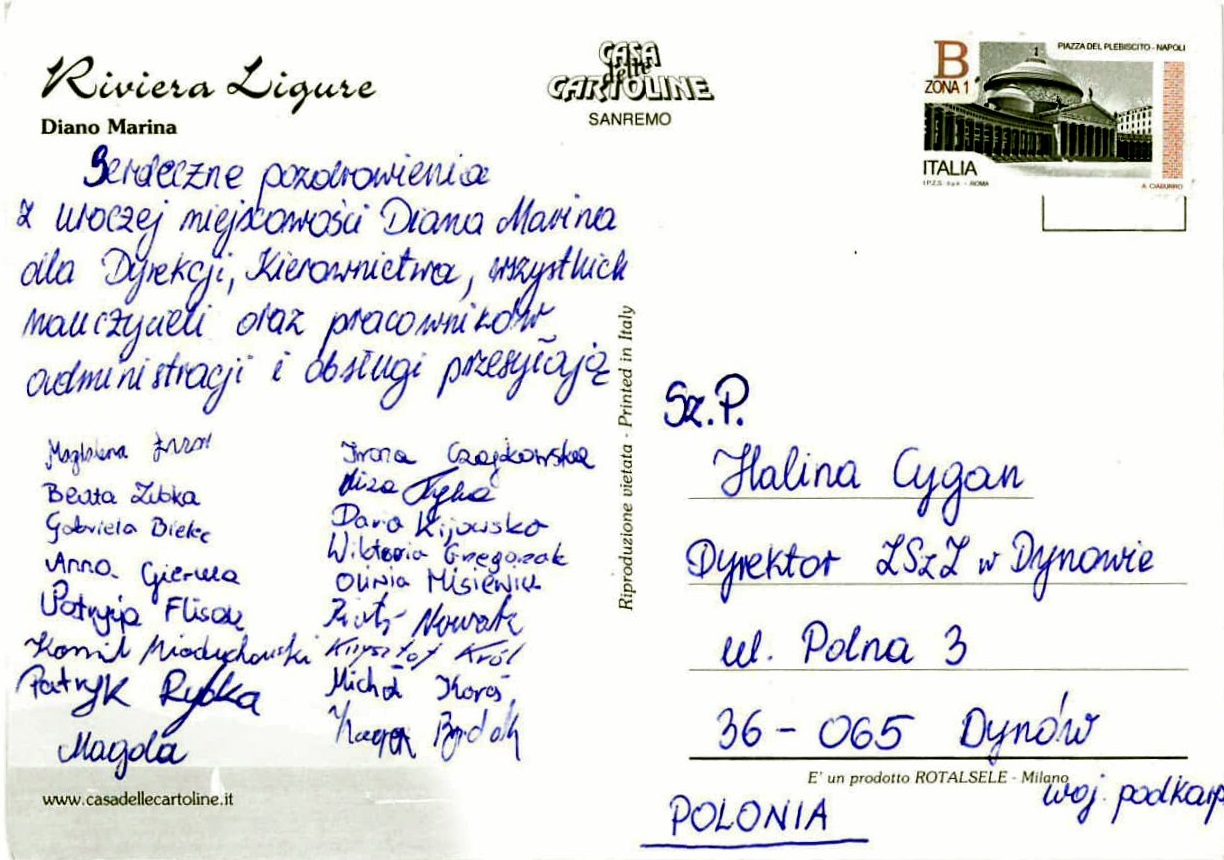 Riviera Ligure
Diano Marina
CASA
delle
CARTOLINE
SANREMO
B
ZONA 1
PIAZZA DEL PLEBISCITO - NAPOLI
ITALIA
I.P.Z.S. S.p.A. - ROMA
A. CIABURRO
Serdeczne pozdrowienia
z uroczej miejscowości Diana Marina
dla Dyrekcji, Kierownictwa, wszystkich
nauczycieli oraz pracowników
administracji i obsługi przesyłają
Magdalena
Beata Zubka
Gabriela Bielec
Anna Gierula
Patrycja Flisak
Kamil Miaduchowski
Patryk Rybka
Magda
Iwona Czajkowska
Daria Kijowska
Wiktoria Grzegorzak
Oliwia Misiewicz
Piotr Nowak
Krzysztof Król
Michał
Kacper
Riproduzione vietata - Printed in Italy
Sz.P.
Halina Cygan
Dyrektor ZSzZ w Dynowie
ul. Polna 3
36-065 Dynów
E' un prodotto ROTALSELE - Milano
woj. podkarp
POLONIA
www.casadellecartoline.it